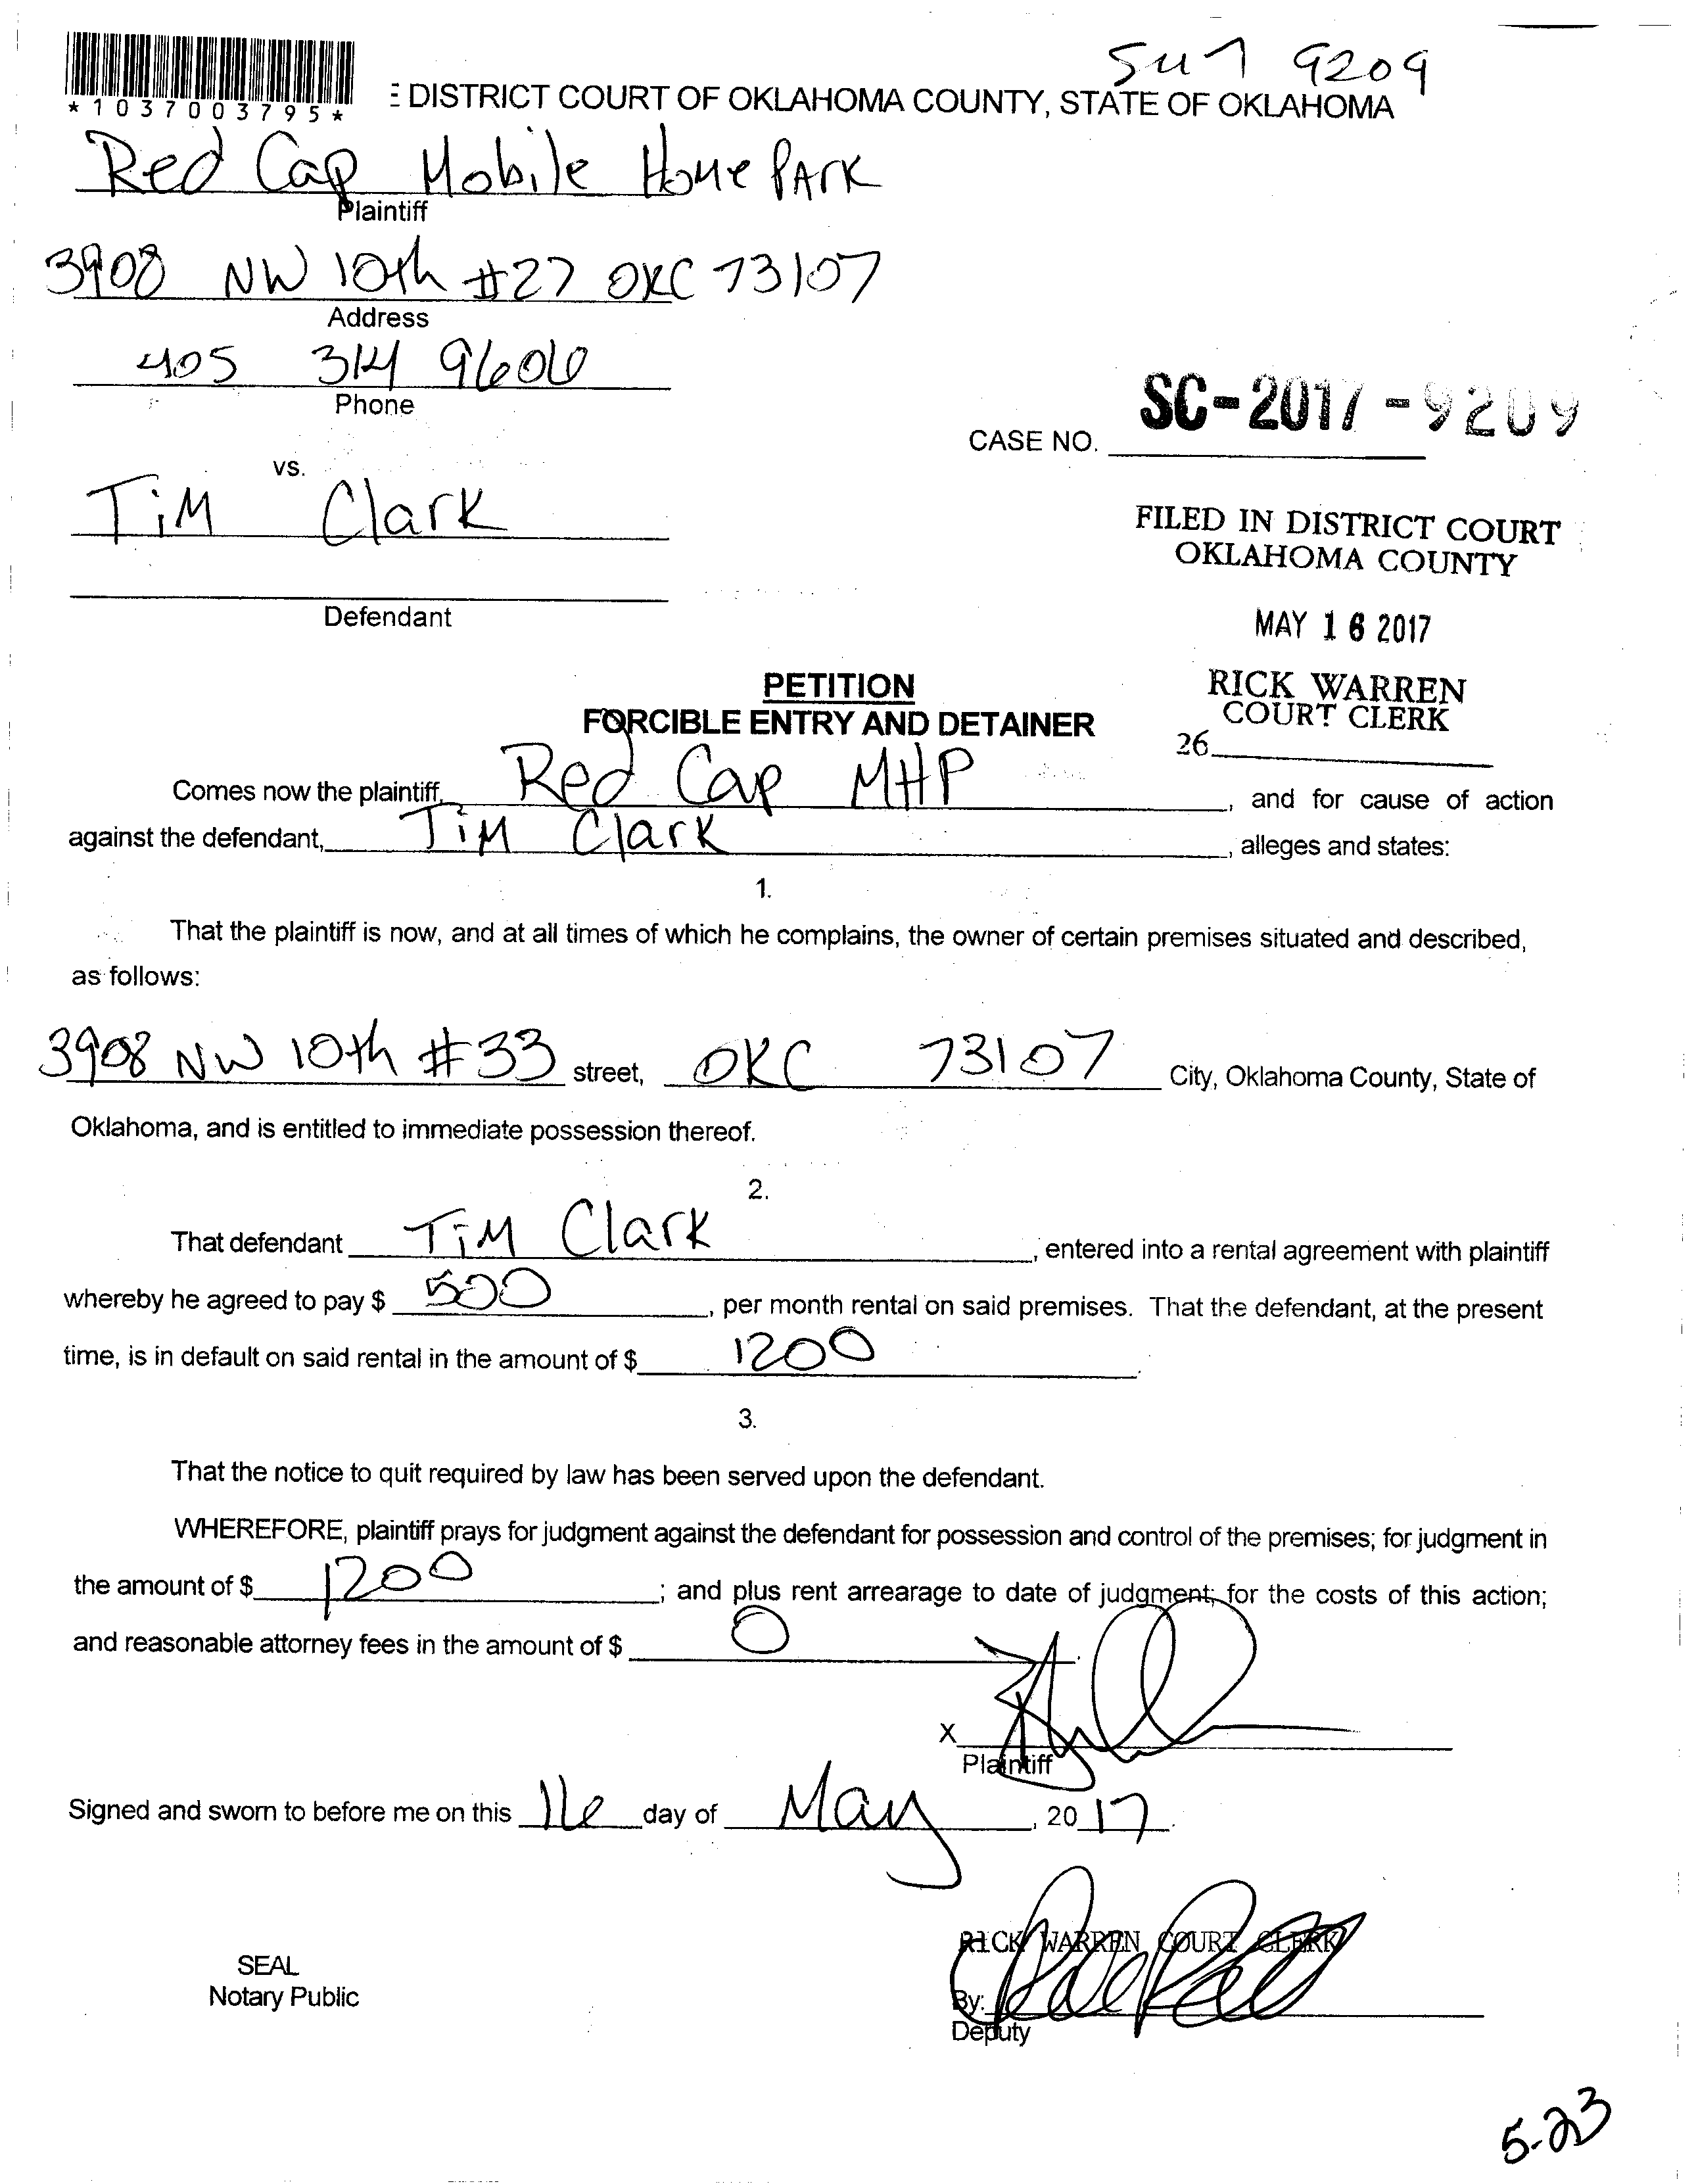 9209
*1037003795*
E DISTRICT COURT OF OKLAHOMA COUNTY, STATE OF OKLAHOMA
Red Cap Mobile Home Park
Plaintiff
3908 NW 10th #27 OKC 73107
Address
405 314 9606
Phone
SC-2017-9209
CASE NO.
vs.
Tim Clark
FILED IN DISTRICT COURT
OKLAHOMA COUNTY
Defendant
MAY 16 2017
PETITION
RICK WARREN
FORCIBLE ENTRY AND DETAINER
COURT CLERK
26
Comes now the plaintiff, Red Cap MHP, and for cause of action
against the defendant, Tim Clark, alleges and states:
1.
That the plaintiff is now, and at all times of which he complains, the owner of certain premises situated and described,
as follows:
3908 NW 10th #33 street, OKC 73107 City, Oklahoma County, State of
Oklahoma, and is entitled to immediate possession thereof.
2.
That defendant Tim Clark, entered into a rental agreement with plaintiff
whereby he agreed to pay $ 500, per month rental on said premises. That the defendant, at the present
time, is in default on said rental in the amount of $ 1200.
3.
That the notice to quit required by law has been served upon the defendant.
WHEREFORE, plaintiff prays for judgment against the defendant for possession and control of the premises; for judgment in
the amount of $ 1200; and plus rent arrearage to date of judgment; for the costs of this action;
and reasonable attorney fees in the amount of $ 0.
X
Plaintiff
Signed and sworn to before me on this 16 day of May, 2017.
RICK WARREN COURT CLERK
SEAL
Notary Public
By:
Deputy
5-23